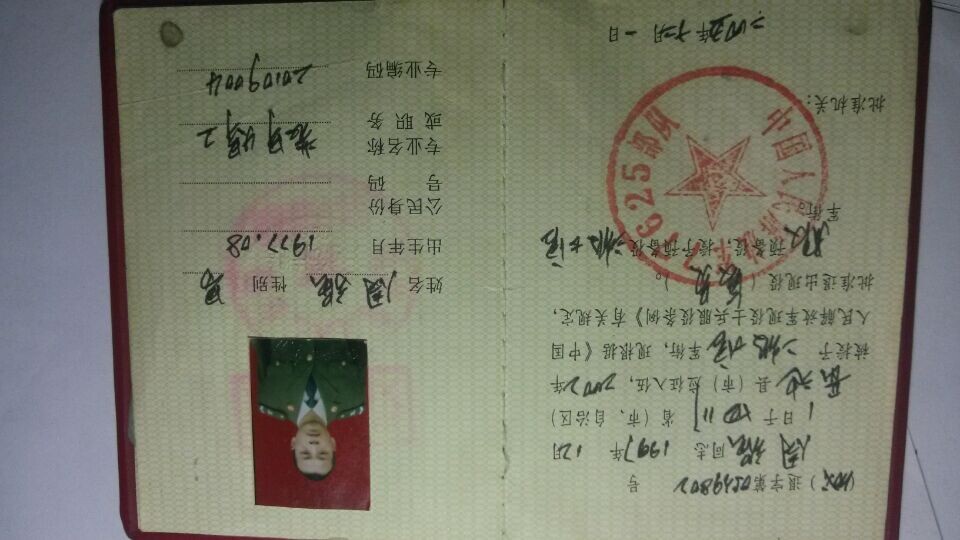 退字第0249802 号
周 同志 1997年 12月
1日于 四川 省（市、自治区）
岳池 县（市）应征入伍，2002年
被授予 军衔，现根据《中国
人民解放军现役士兵服役条例》有关规定，
批准退出现役（ 复员 ）。
预备役，授予预备役
军衔。
批准机关：
中国人民解放军77625部队
年十二月一日
姓名 周 性别 男
出生年月 1977.08
公民身份
号 码
专业名称
或 职 务
专业编码 20109004